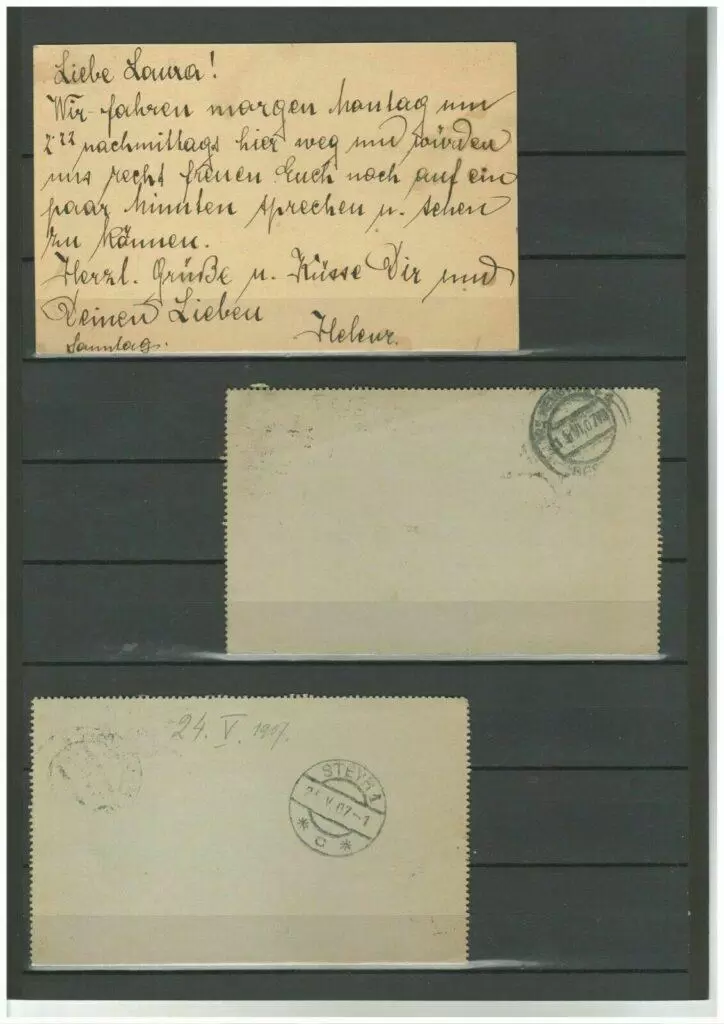 Liebe Laura!
Wir fahren morgen Montag um
2²² nachmittags hier weg und würden
uns recht freuen Euch noch auf ein
paar Minuten sprechen u. sehen
zu können.
Herzl. Grüße u. Küsse Dir und
Deinen Lieben
Helene.
Sonntag.
24. V. 1907.
STEYR 1
V.07-1
* C *